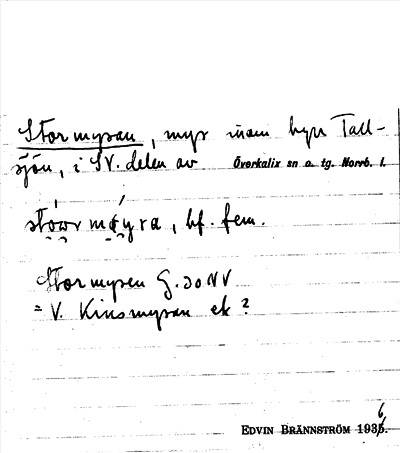 Stormyran, myr inom byn Tall-
sjön, i SV. delen av Överkalix sn o. tg. Norrb. l.
bf. fem.
Stormyren G. 30 NV
= V. Kinsmyran ek ?
EDVIN BRÄNNSTRÖM 1936.